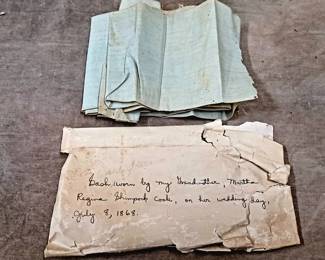 Sash worn by my Grandmother, Martha
Regina Shimpock Cook, on her wedding day,
July 8, 1868.